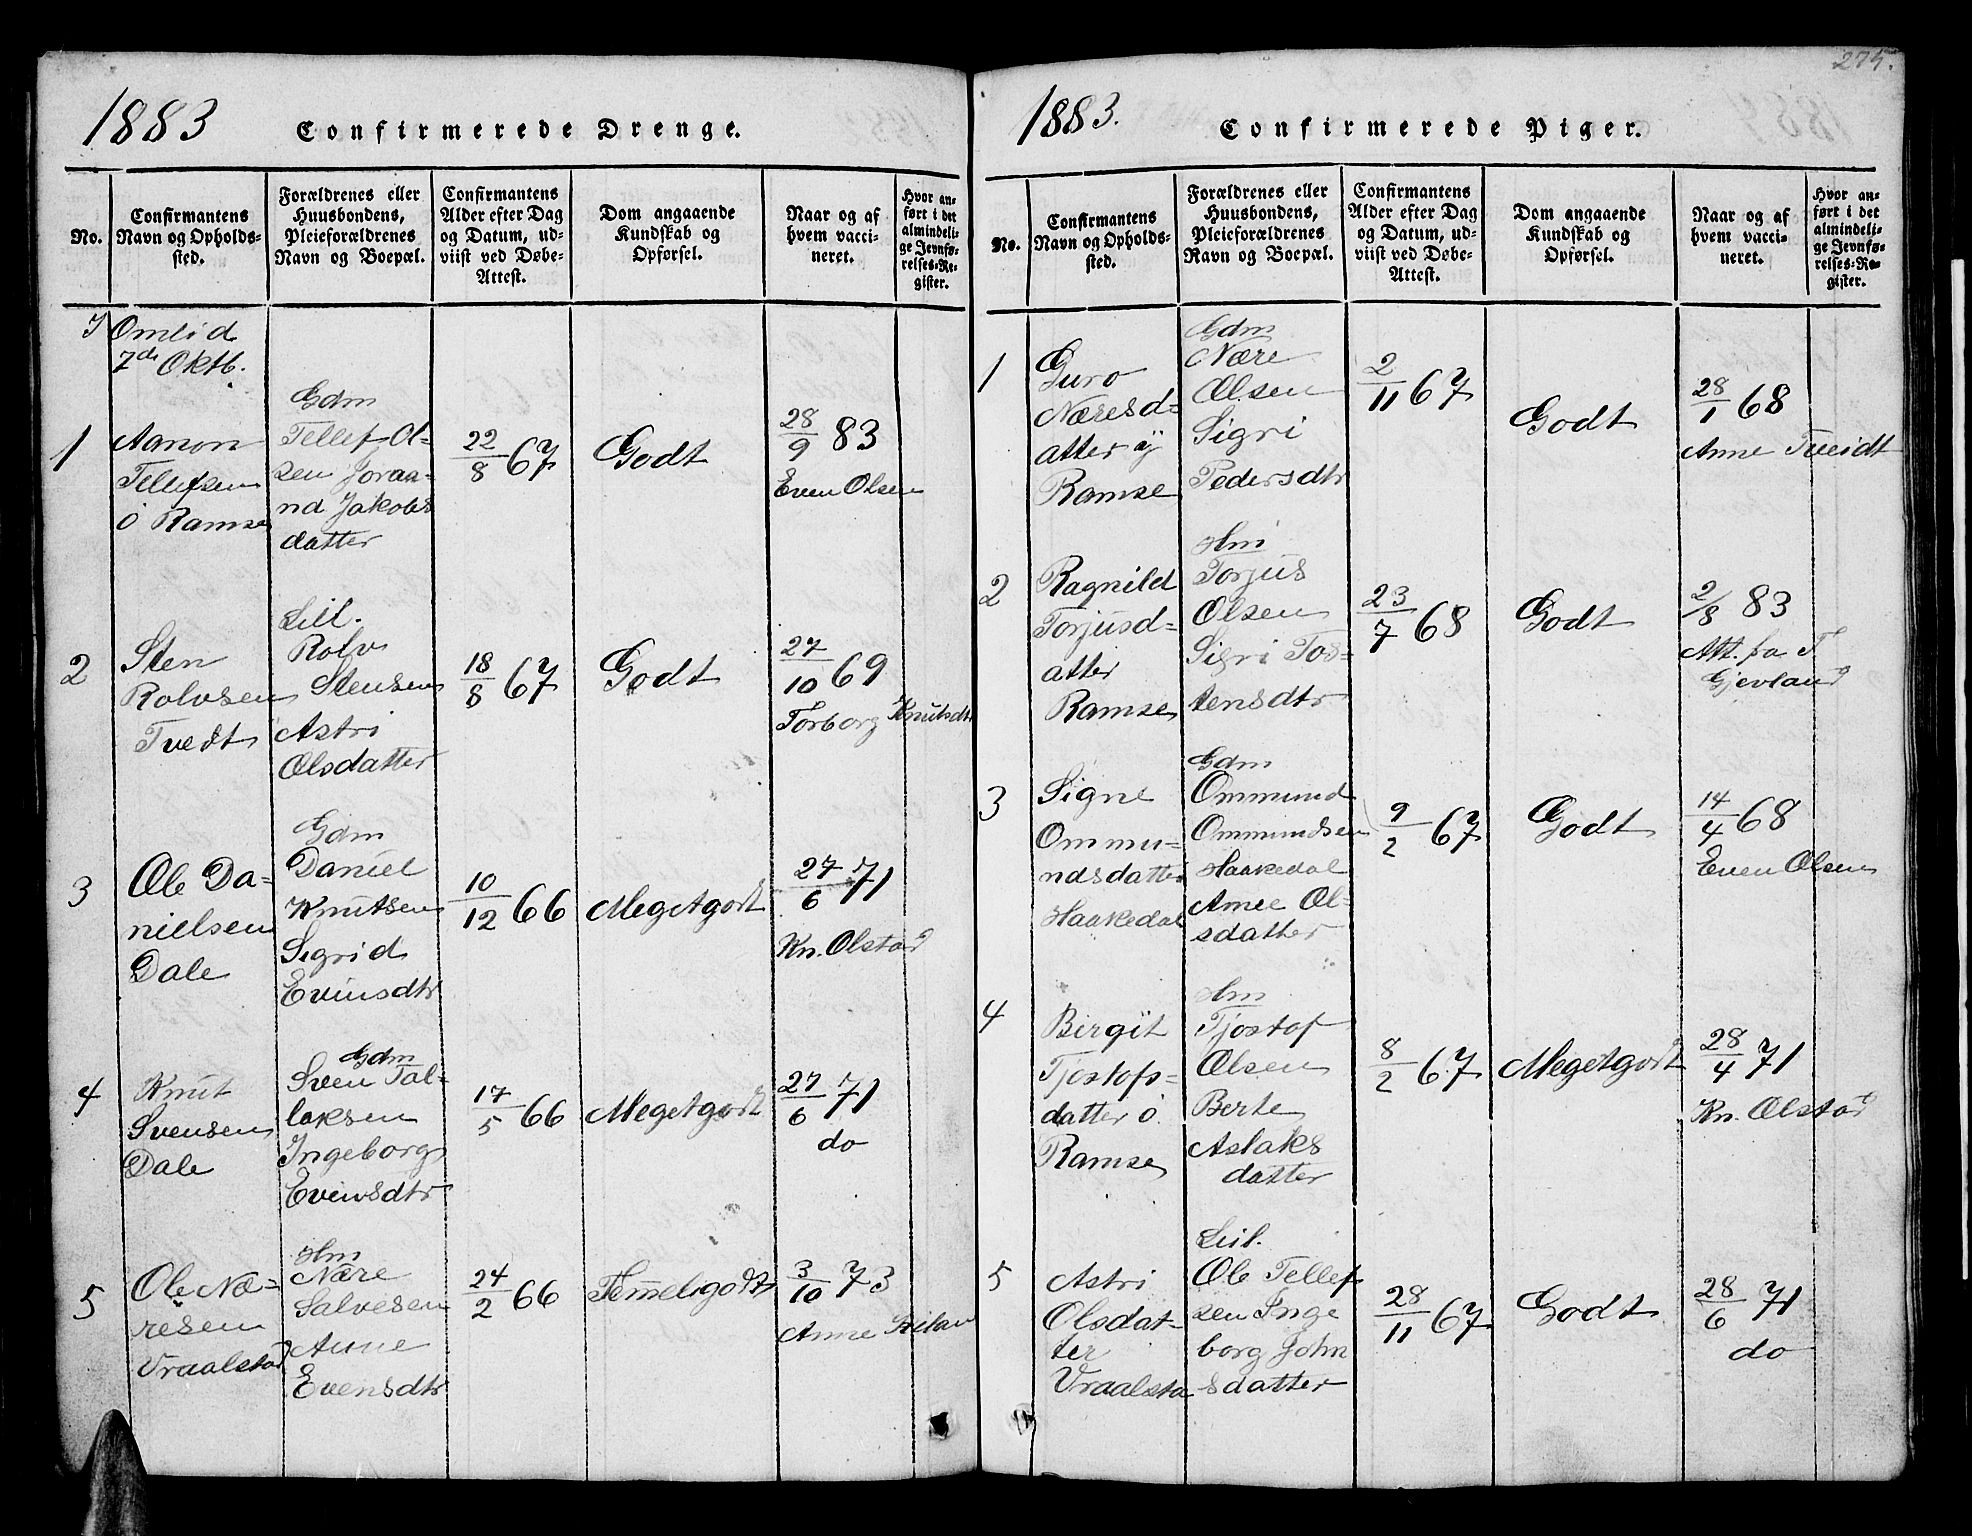 275.
1883
Confirmerede Drenge.
No.
Confirmantens
Navn og Opholds-
sted.
Forældrenes eller
Huusbondens,
Pleieforældrenes
Navn og Boepæl.
Confirmantens
Alder efter Dag
og Datum, ud-
viist ved Døbe-
Attest.
Dom angaaende
Kundskab og
Opførsel.
Naar og af
hvem vacci-
neret.
Hvor an-
ført i det
almindeli-
ge Jevnfø-
relses-Re-
gister.
I Omlid
7de Oktb.
1
Aanon
Tellefsen
ö Ramse
Gdm
Tellef Ol-
sen Joraa-
nd Jakobs
datter
22/8 67
Godt
28/9 83
Even Olsen
2
Sten
Rolvsen
Tvedt
Leil.
Rolv
Stensen
Astri
Olsdatter
18/8 67
Godt
27/10 69
Torborg Knutsdtr
3
Ole Da-
nielsen
Dale
Gdm
Daniel
Knutsen
Sigrid
Evensdtr
10/12 66
Megetgodt
27/6 71
Kn. Olstad
4
Knut
Svensen
Dale
Gdm
Sven Tal-
laksen
Ingeborg
Evensdtr
17/5 66
Megetgodt
27/6 71
do
5
Ole Næ-
resen
Vraalstad
Hm
Nære
Salvesen
Anne
Evensdtr
24/2 66
Temmeligodt
3/10 73
Anne
1883.
Confirmerede Piger.
No.
Confirmantens
Navn og Opholds-
sted.
Forældrenes eller
Huusbondens,
Pleieforældrenes
Navn og Boepæl.
Confirmantens
Alder efter Dag
og Datum, ud-
viist ved Døbe-
Attest.
Dom angaaende
Kundskab og
Opførsel.
Naar og af
hvem vacci-
neret.
Hvor an-
ført i det
almindeli-
ge Jevnfø-
relses-Re-
gister.
1
Guro
Næresd-
atter y
Ramse
Gdm
Nære
Olsen
Sigri
Pedersdtr
2/11 67
Godt
28/1 68
Anne Tveidt
2
Ragnild
Torjusd-
atter
Ramse
Hm
Torjus
Olsen
Sigri Tos-
tensdtr
23/7 68
Godt
2/8 83
Att. fra T.
Gjevland
3
Signe
Ommu-
ndsdatter
Haakedal
Gdm
Ommund
Ommundsen
Haakedal
Amee Ol-
sdatter
9/2 67
Godt
14/4 68
Even Olsen
4
Birgit
Tjostofs-
datter ö.
Ramse
Hm
Tjostof
Olsen
Berte
Aslaks
datter
8/2 67
Megetgodt
28/4 71
Kn. Olstad
5
Astri
Olsdat-
ter
Vraalsta
Leil.
Ole Tellef
sen Inge
borg John
sdatter
28/11 67
Godt
28/6 71
do